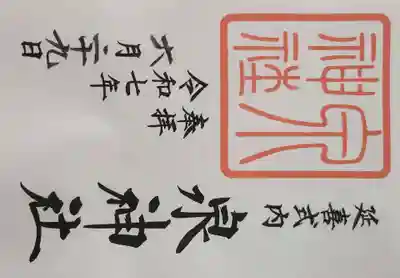 泉神社
延喜式内
泉神社
奉拝
令和七年
六月二十九日